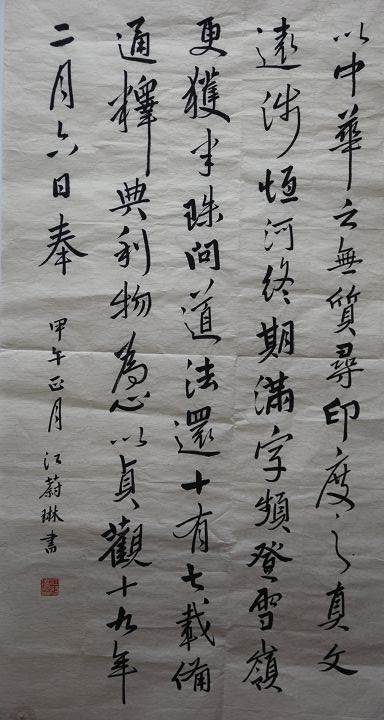 以中華之無質尋印度之真文
遠涉恆河終期滿字頻登雪嶺
更獲半珠問道法還十有七載備
通釋典利物為心以貞觀十九年
二月六日奉
甲午正月江蔚琳書